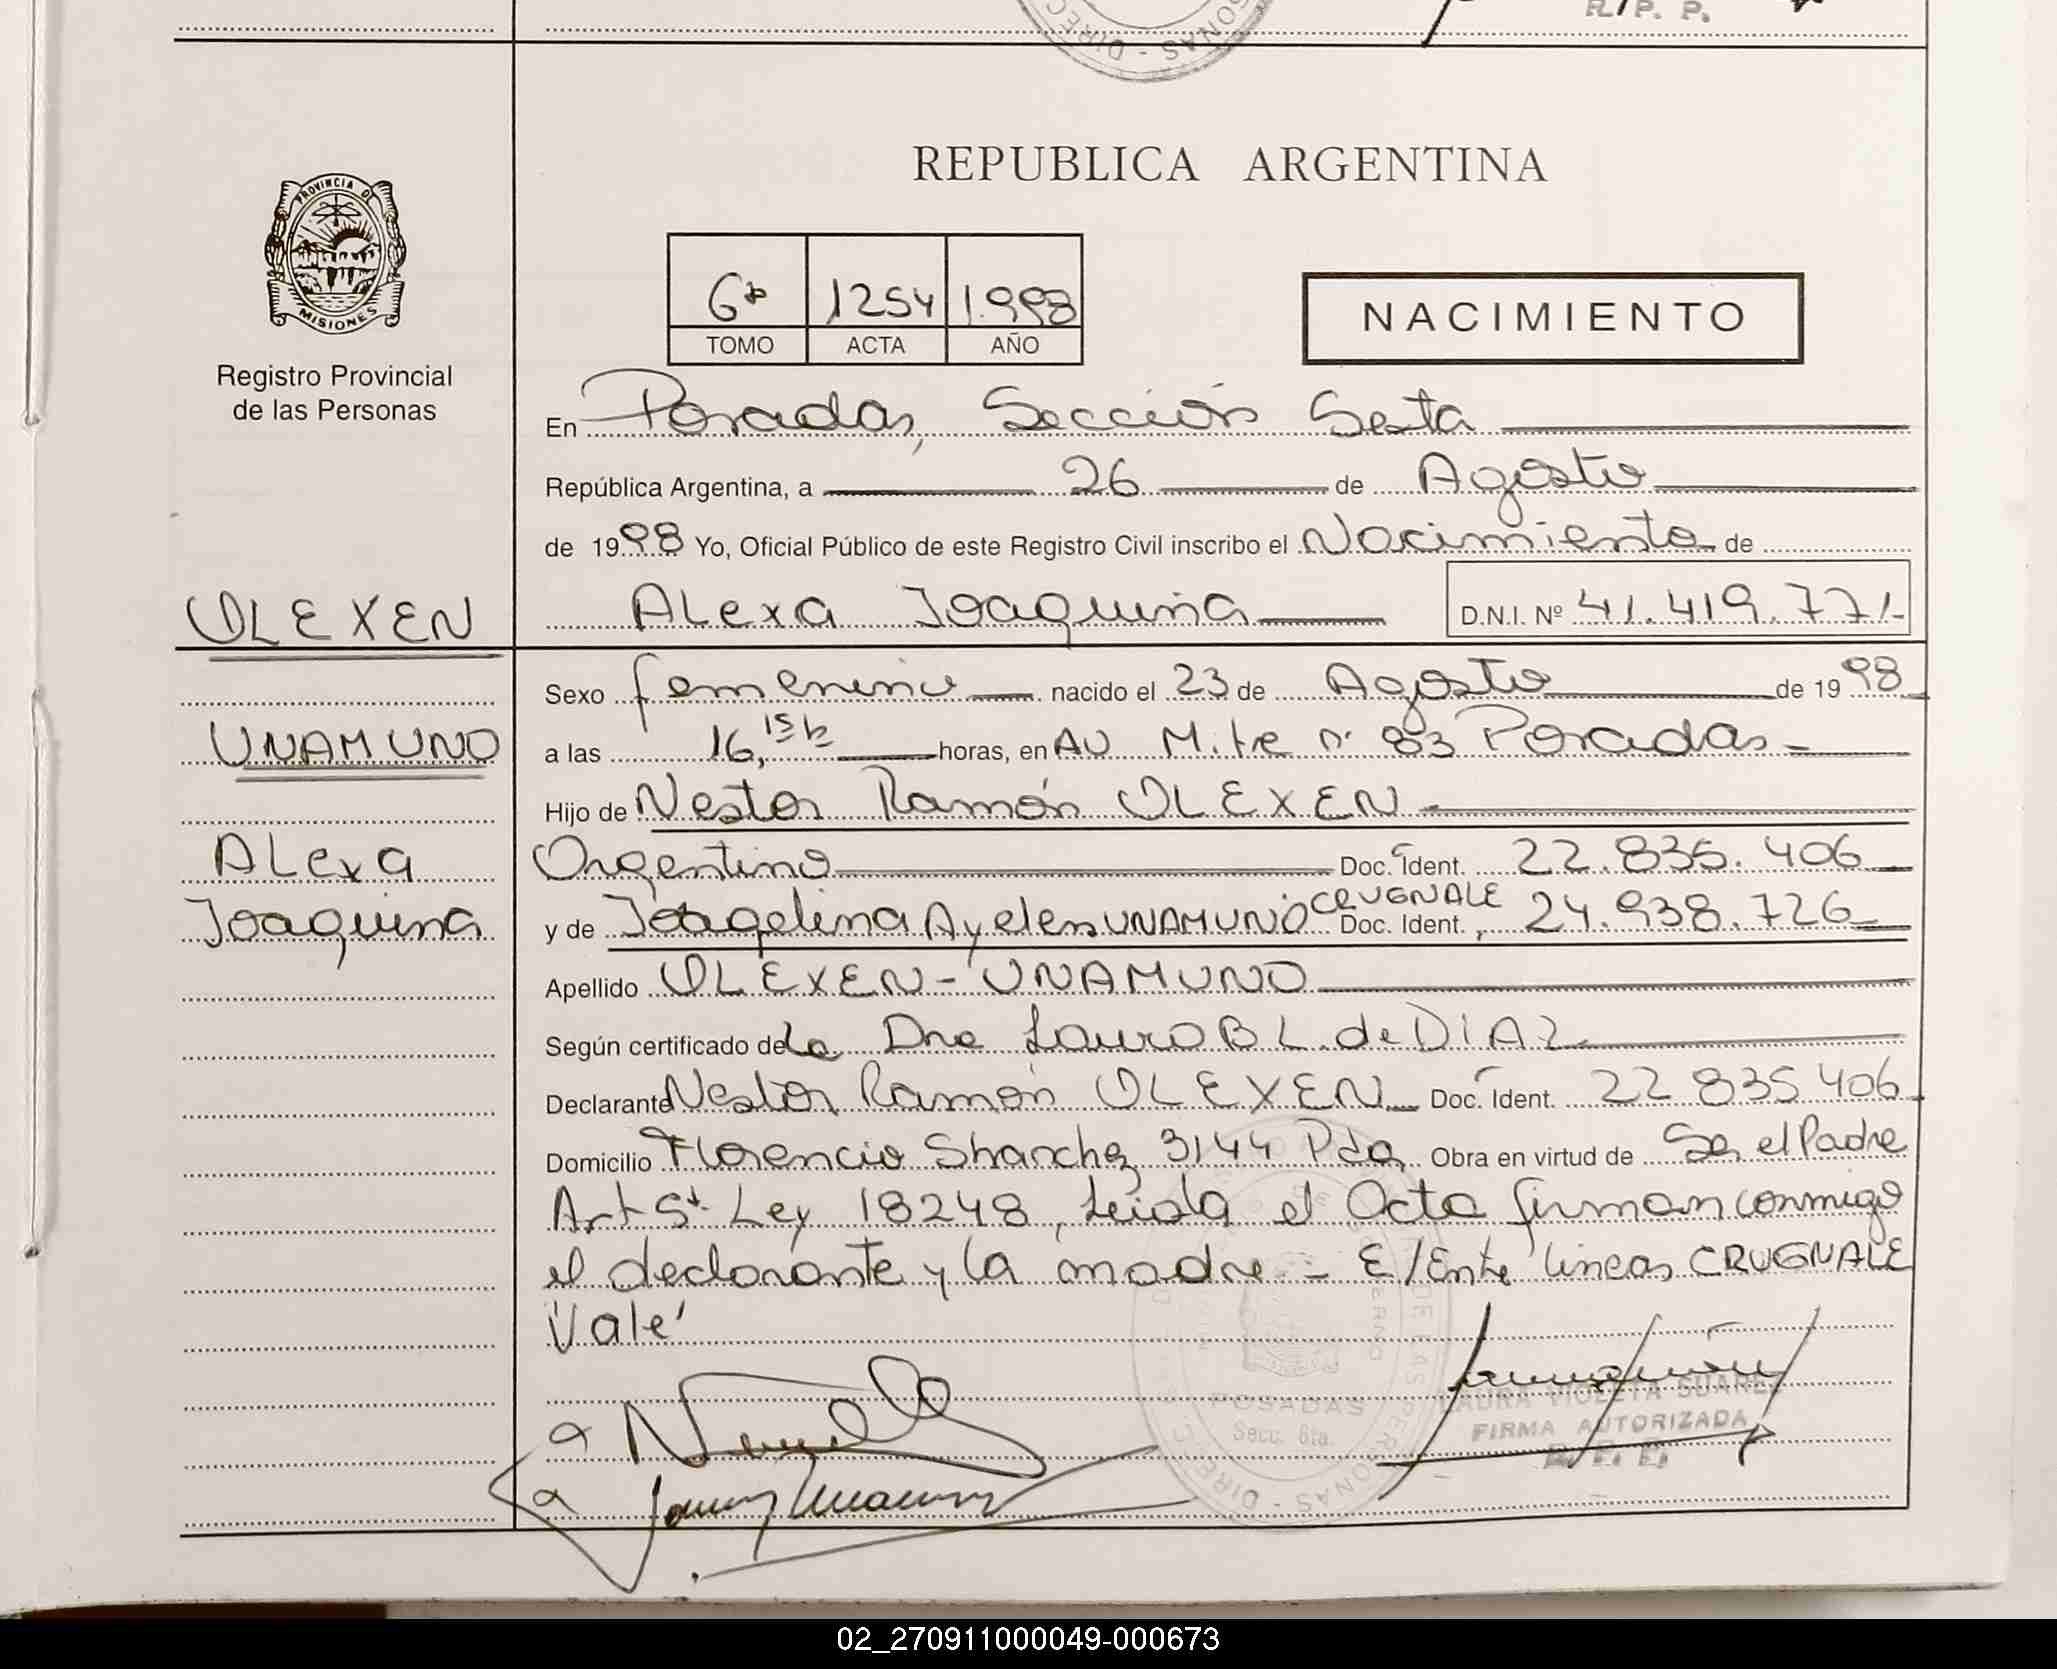 R./P. P.
DIREC - SONAS
REPUBLICA ARGENTINA
PROVINCIA DE
MISIONES
Registro Provincial
de las Personas
6ª 1254 1.998
TOMO ACTA AÑO
NACIMIENTO
En Posadas, Sección Sexta
República Argentina, a 26 de Agosto
de 1998 Yo, Oficial Público de este Registro Civil inscribo el Nacimiento de
OLEXEN
ALexa Joaquina D.N.I. Nº 41.419.771-
Sexo femenino nacido el 23 de Agosto de 1998
UNAMUNO
a las 16,15 h horas, en AV Mitre nº 83 Posadas -
Hijo de Nestor Ramón OLEXEN
ALexa
Argentino Doc. Ident. 22.835.406
Joaquina
CRUGNALE
y de Joaqelina Ayelen UNAMUNO Doc. Ident. 24.938.726
Apellido OLEXEN - UNAMUNO
Según certificado de La Dra Laura B L. de DIAZ
Declarante Nestor Ramón OLEXEN Doc. Ident. 22 835 406
Domicilio Florencio Shanchez 3144 Pdas Obra en virtud de Ser el Padre
Art 5º Ley 18248, Leida el Acta firman conmigo
el declarante y la madre - E/Entre lineas CRUGNALE
"Vale"
LAURA VIOLETA SUAREZ
FIRMA AUTORIZADA
R. P. P.
POSADAS
Secc. 6ta.
02_270911000049-000673